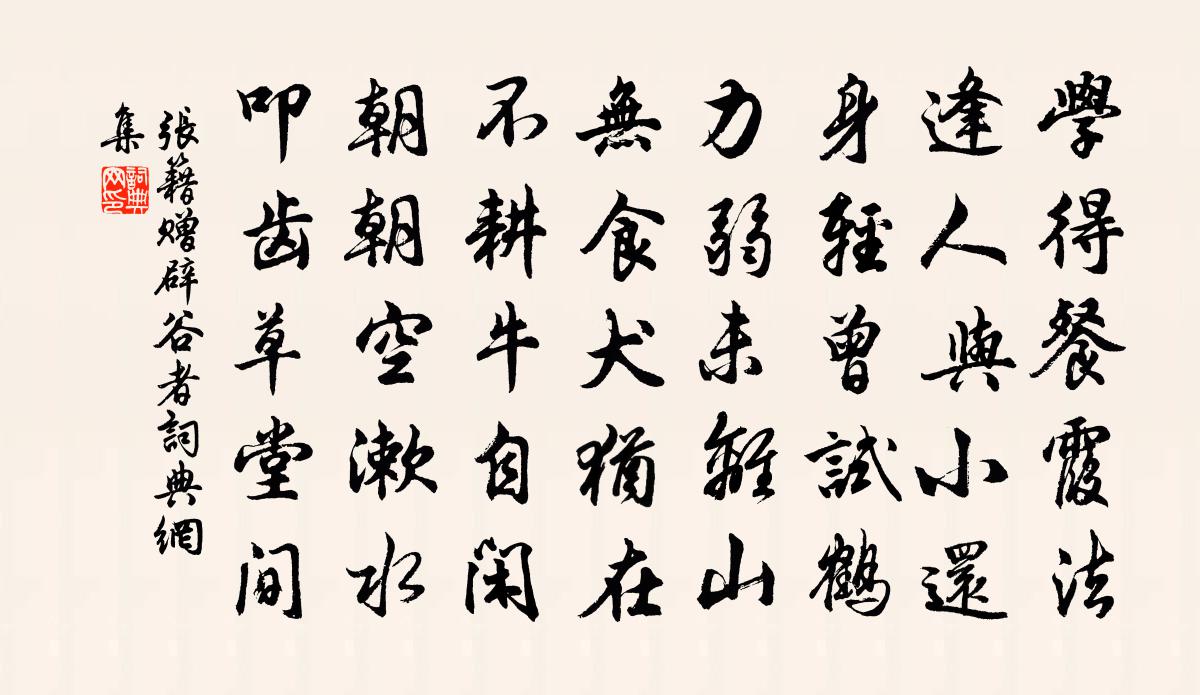 學得餐霞法
逢人與小還
身輕曾試鶴
力弱未離山
無食犬猶在
不耕牛自閑
朝朝空漱水
叩齿草堂間
張籍赠辟谷者詞典網
集
詞典
网印